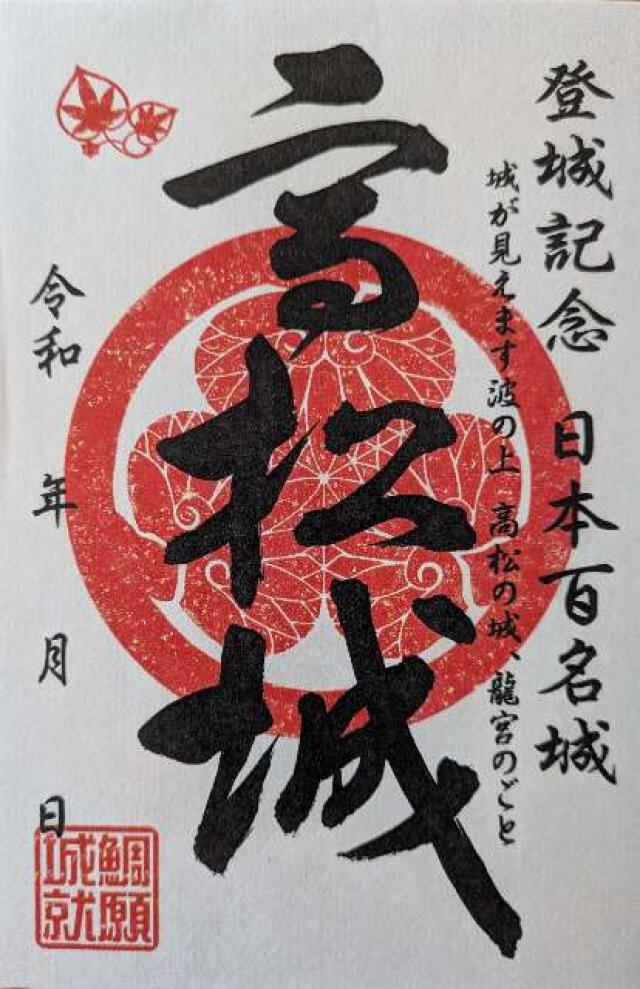 登城記念 日本百名城
城が見えます波の上 高松の城、龍宮のごと
高松城
令和 年 月 日
鯛願
城就